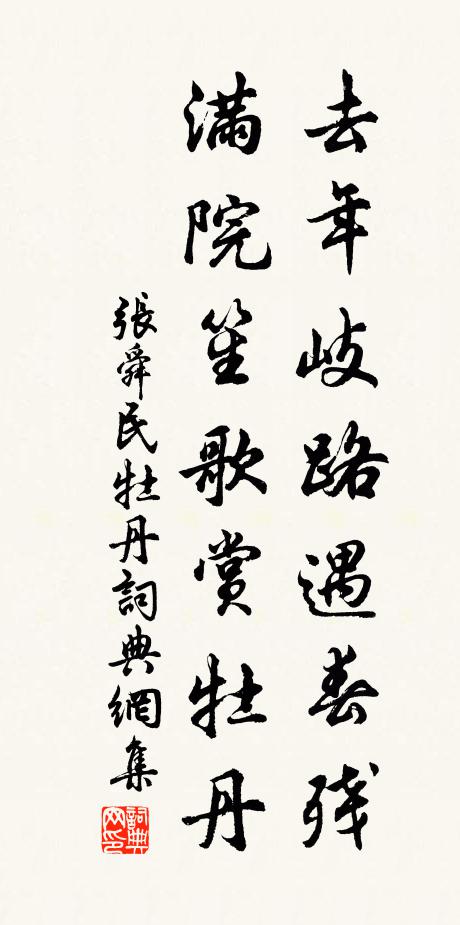 去年歧路遇春残
滿院笙歌賞牡丹
張舜民牡丹詞典網集
詞典網印